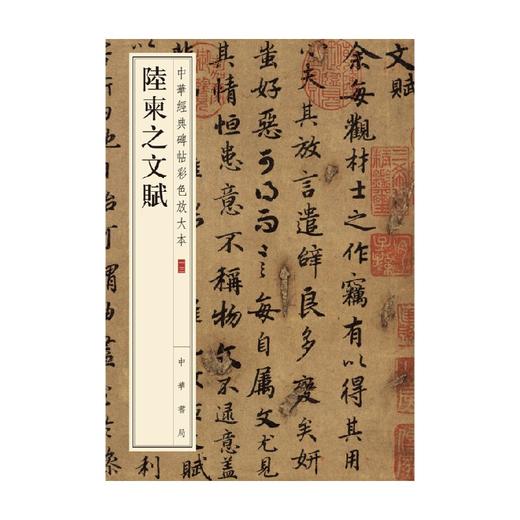 文賦
余每觀材士之作竊有以得其用
心夫其放言遣辞良多變矣妍
蚩好惡可得而言每自属文尤見
其情恒患意不稱物文不逮意盖
中華經典碑帖彩色放大本
中華書局
陸柬之文賦
可謂曲盡
利